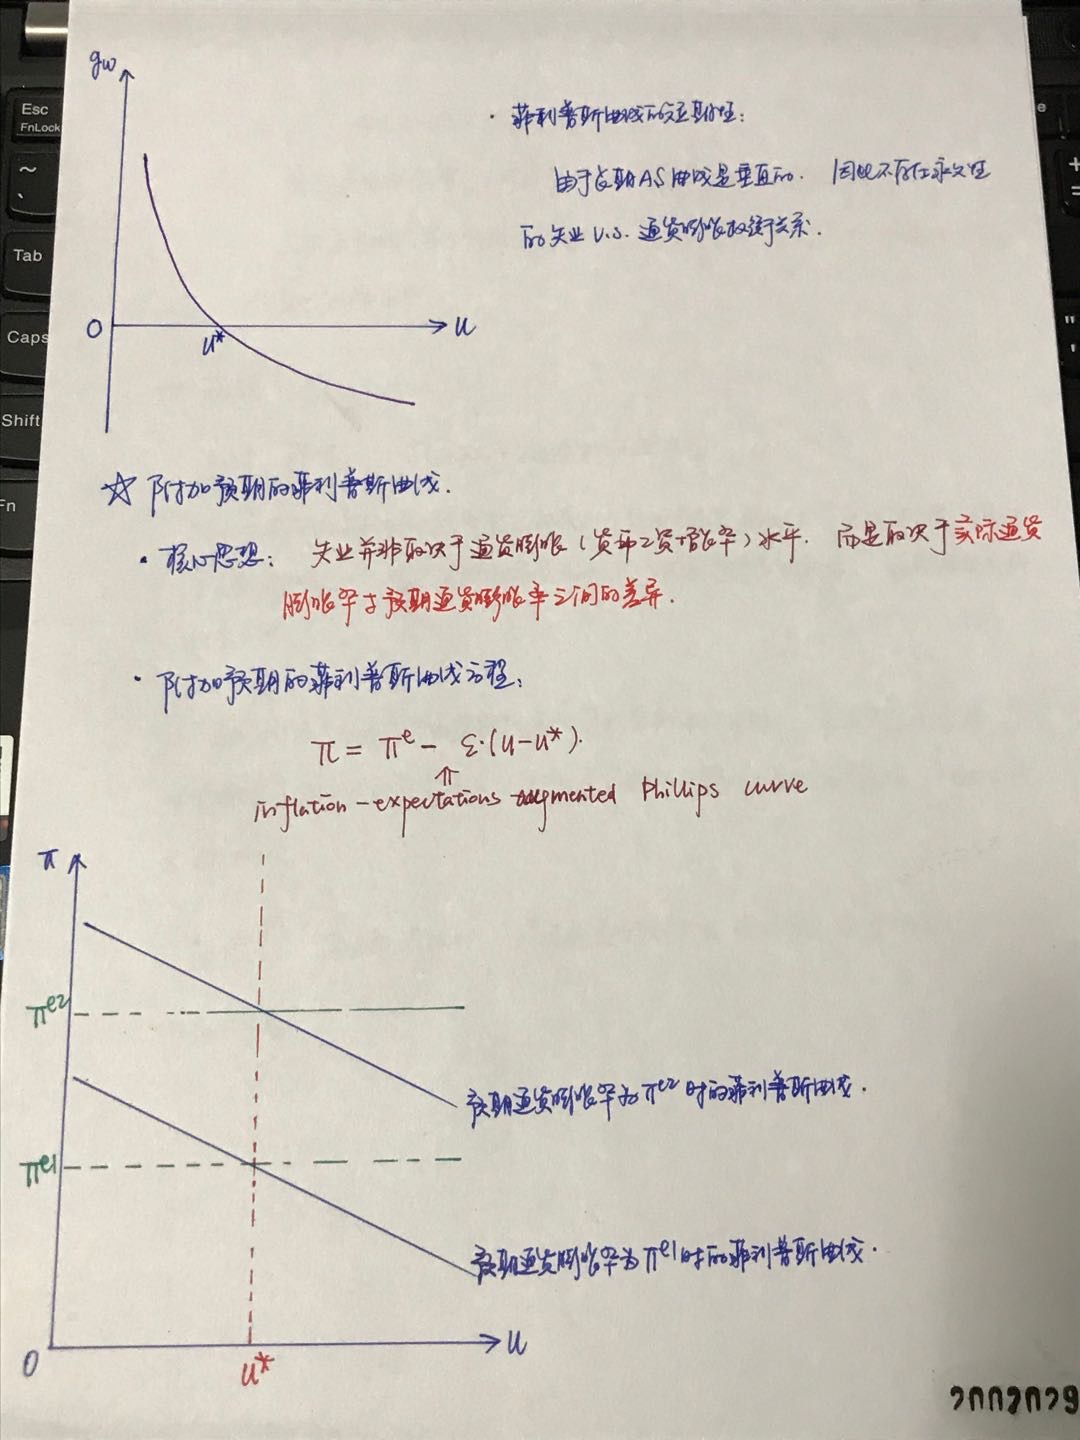 gw
O
u*
u
· 菲利普斯曲线的短期性:
由于长期AS曲线是垂直的. 因此不存在永久性
的失业 v.s. 通货膨胀权衡关系.
☆ 附加预期的菲利普斯曲线.
· 核心思想: 失业并非取决于通货膨胀(货币工资增长率)水平. 而是取决于实际通货
膨胀率与预期通货膨胀率之间的差异.
· 附加预期的菲利普斯曲线方程:
π = πe − ε·(u−u*).
⇑
inflation-expectations augmented Phillips curve
π
πe2
预期通货膨胀率为πe2时的菲利普斯曲线.
πe1
预期通货膨胀率为πe1时的菲利普斯曲线.
O
u*
u
Esc
FnLock
~
Tab
Caps
Shift
Fn